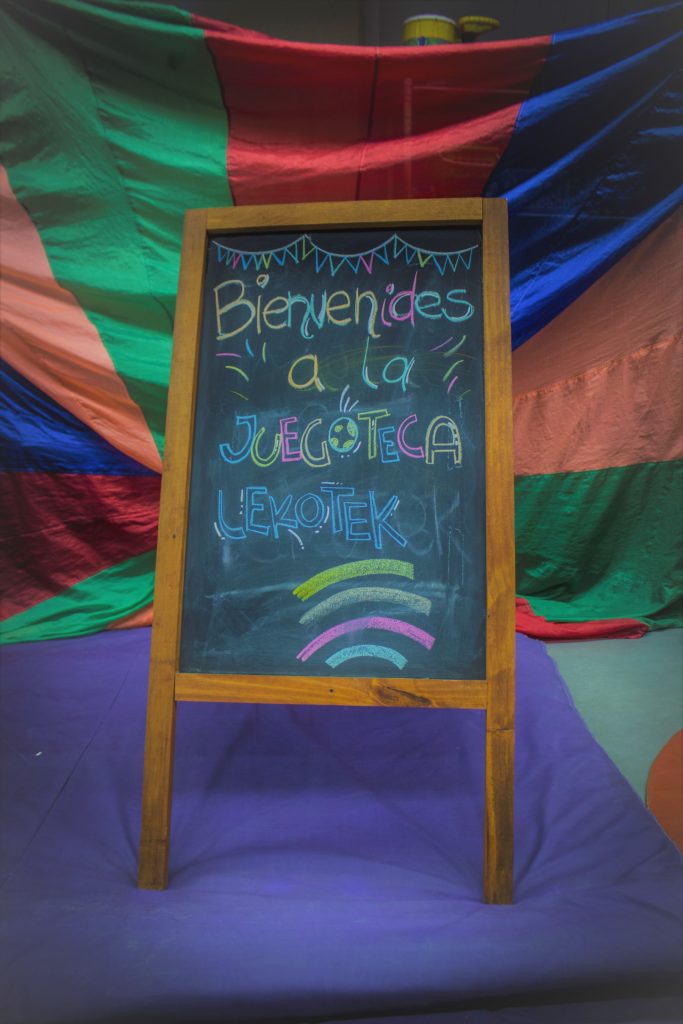 Bienvenides
a la
JUEGOTECA
LEKOTEK